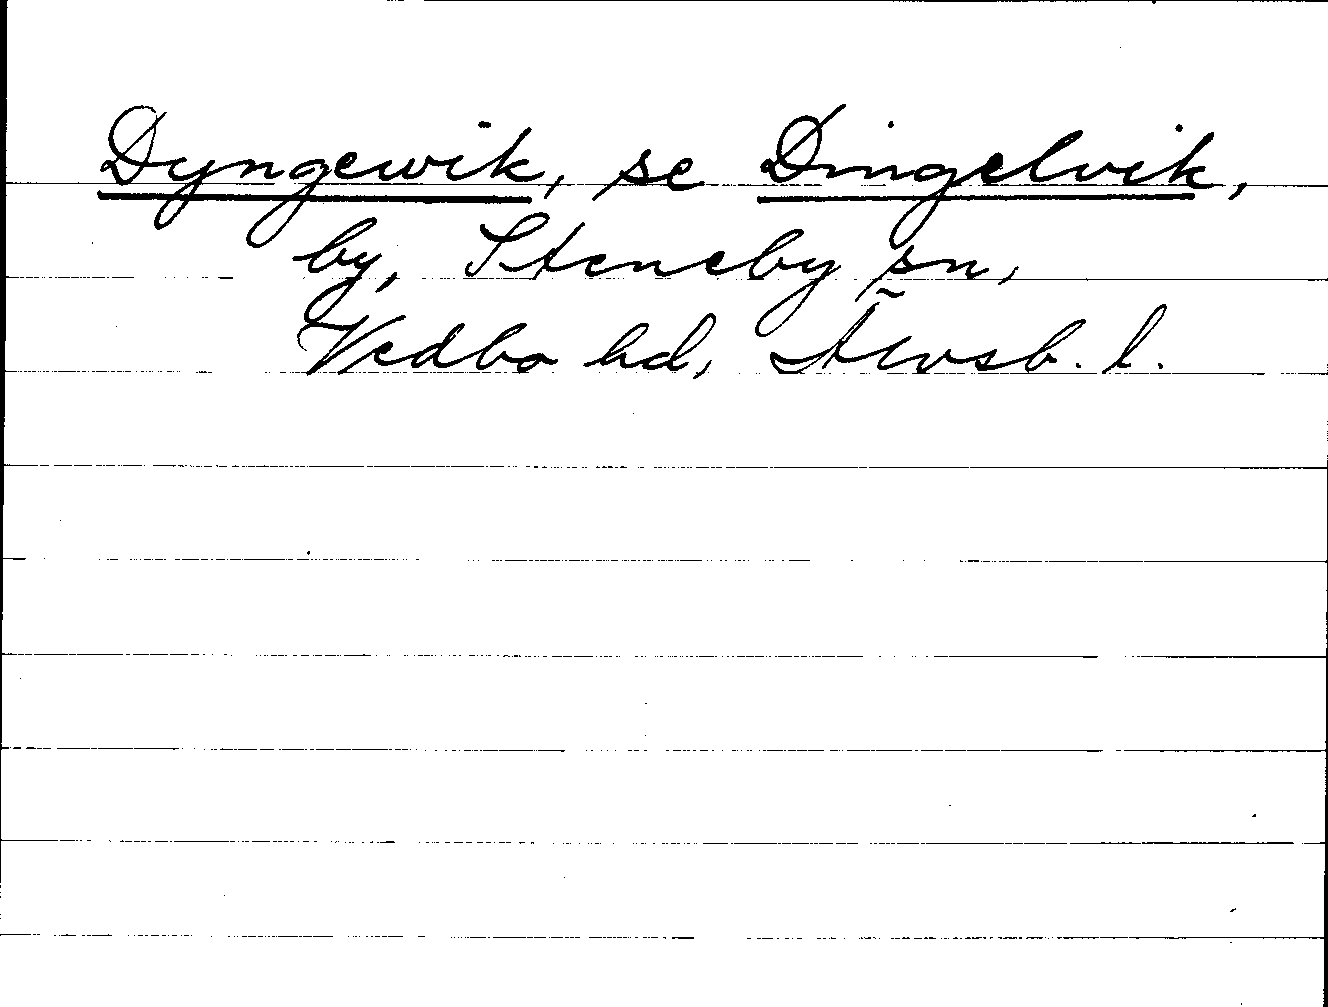 Dyngewik, se Dingelvik,
by, Steneby sn,
Vedbo hd, Älvsb. l.